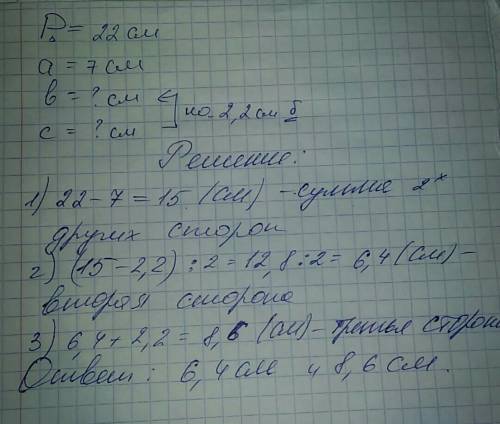 P△ = 22 см
a = 7 см
в = ? см
с = ? см
на 2,2 см б
Решение:
1) 22 - 7 = 15 (см) - сумма 2х
других сторон
2) (15 - 2,2) : 2 = 12,8 : 2 = 6,4 (см) -
вторая сторона
3) 6,4 + 2,2 = 8,6 (см) - третья сторона
Ответ: 6,4 см и 8,6 см.